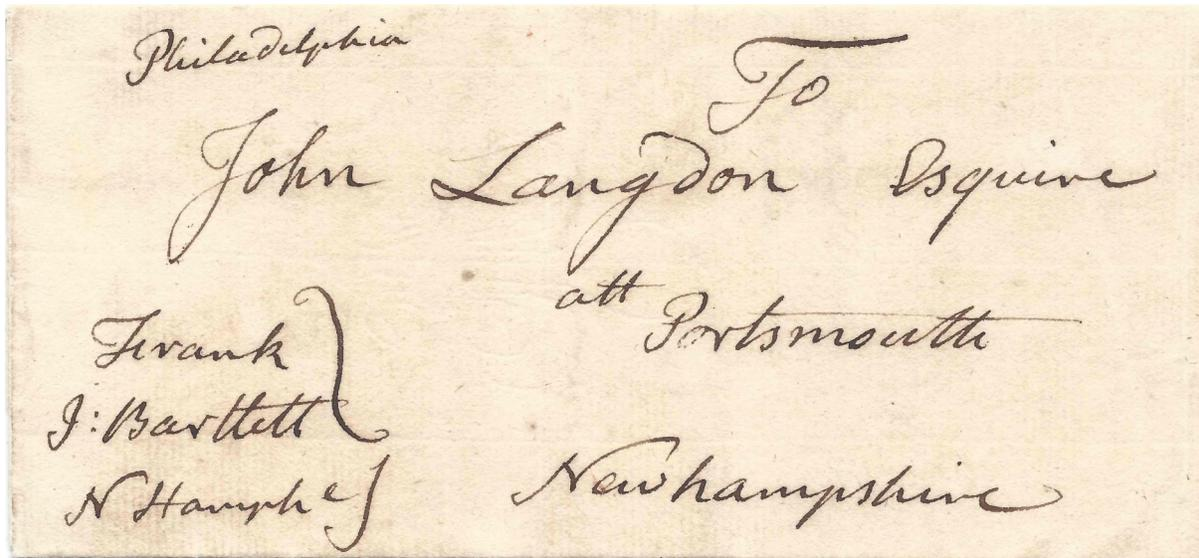 Philadelphia
To
John Langdon Esquire
att
Portsmouth
Newhampshire
Frank
J: Bartlett
N Hamphe